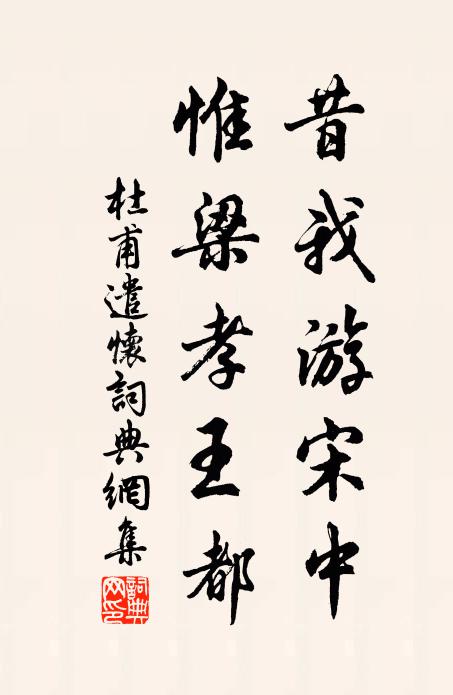 昔我游宋中
惟梁孝王都
杜甫遣懷詞典網集
詞典網印